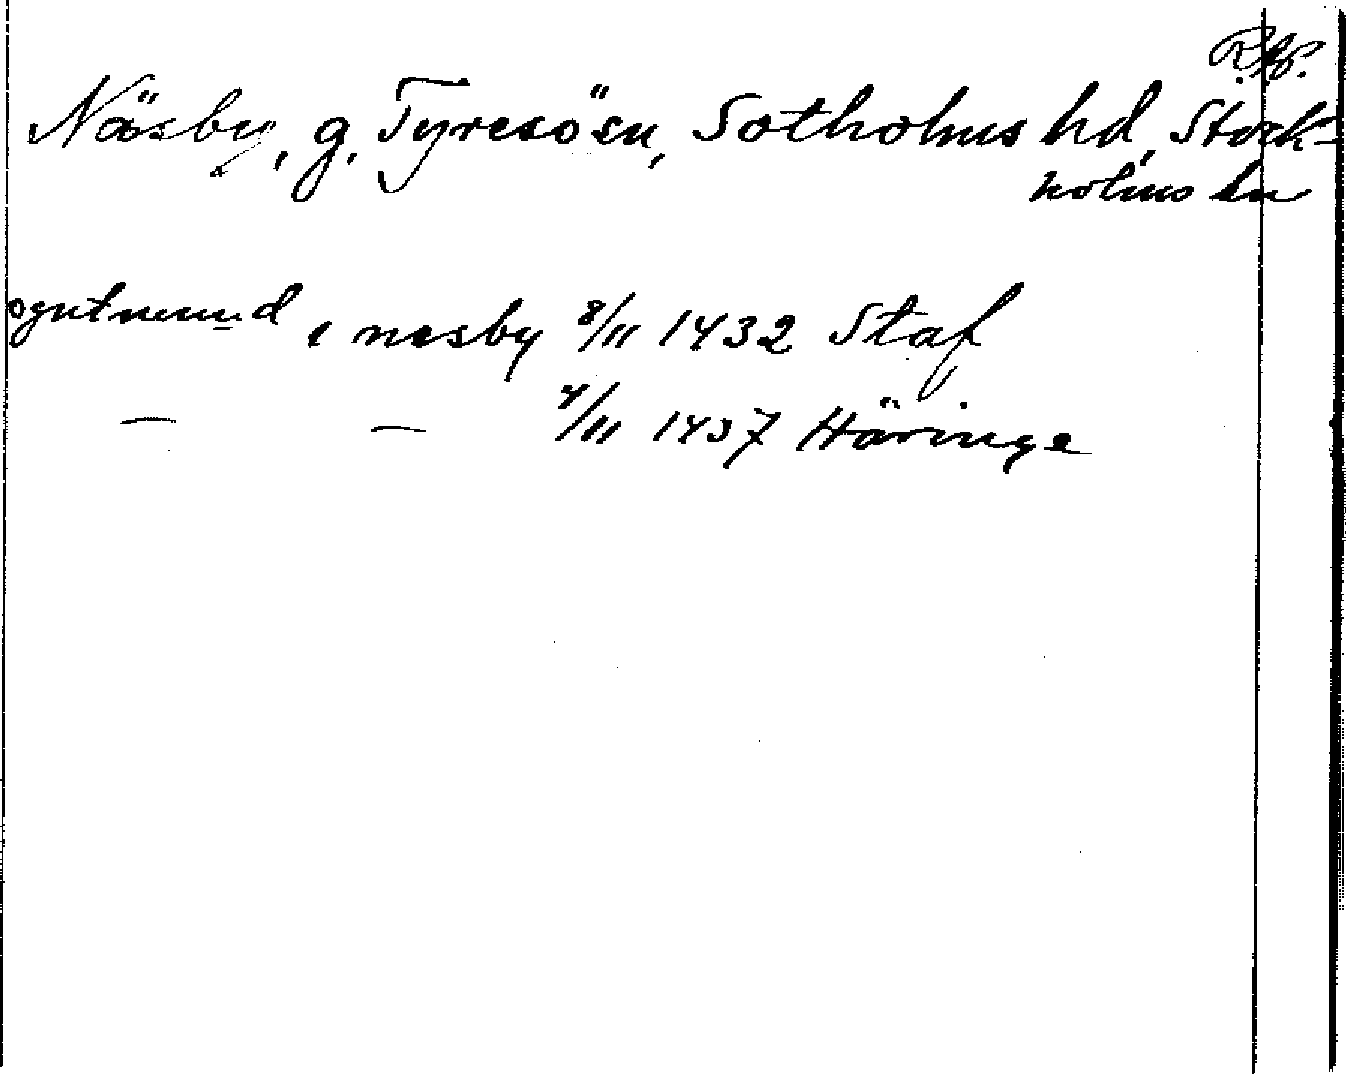 R.Ap.
Näsby, g. Tyresö sn, Sotholms hd, Stock-
holms län
ogutmund i nesby 8/11 1432 Staf
— — 4/11 1437 Häringe